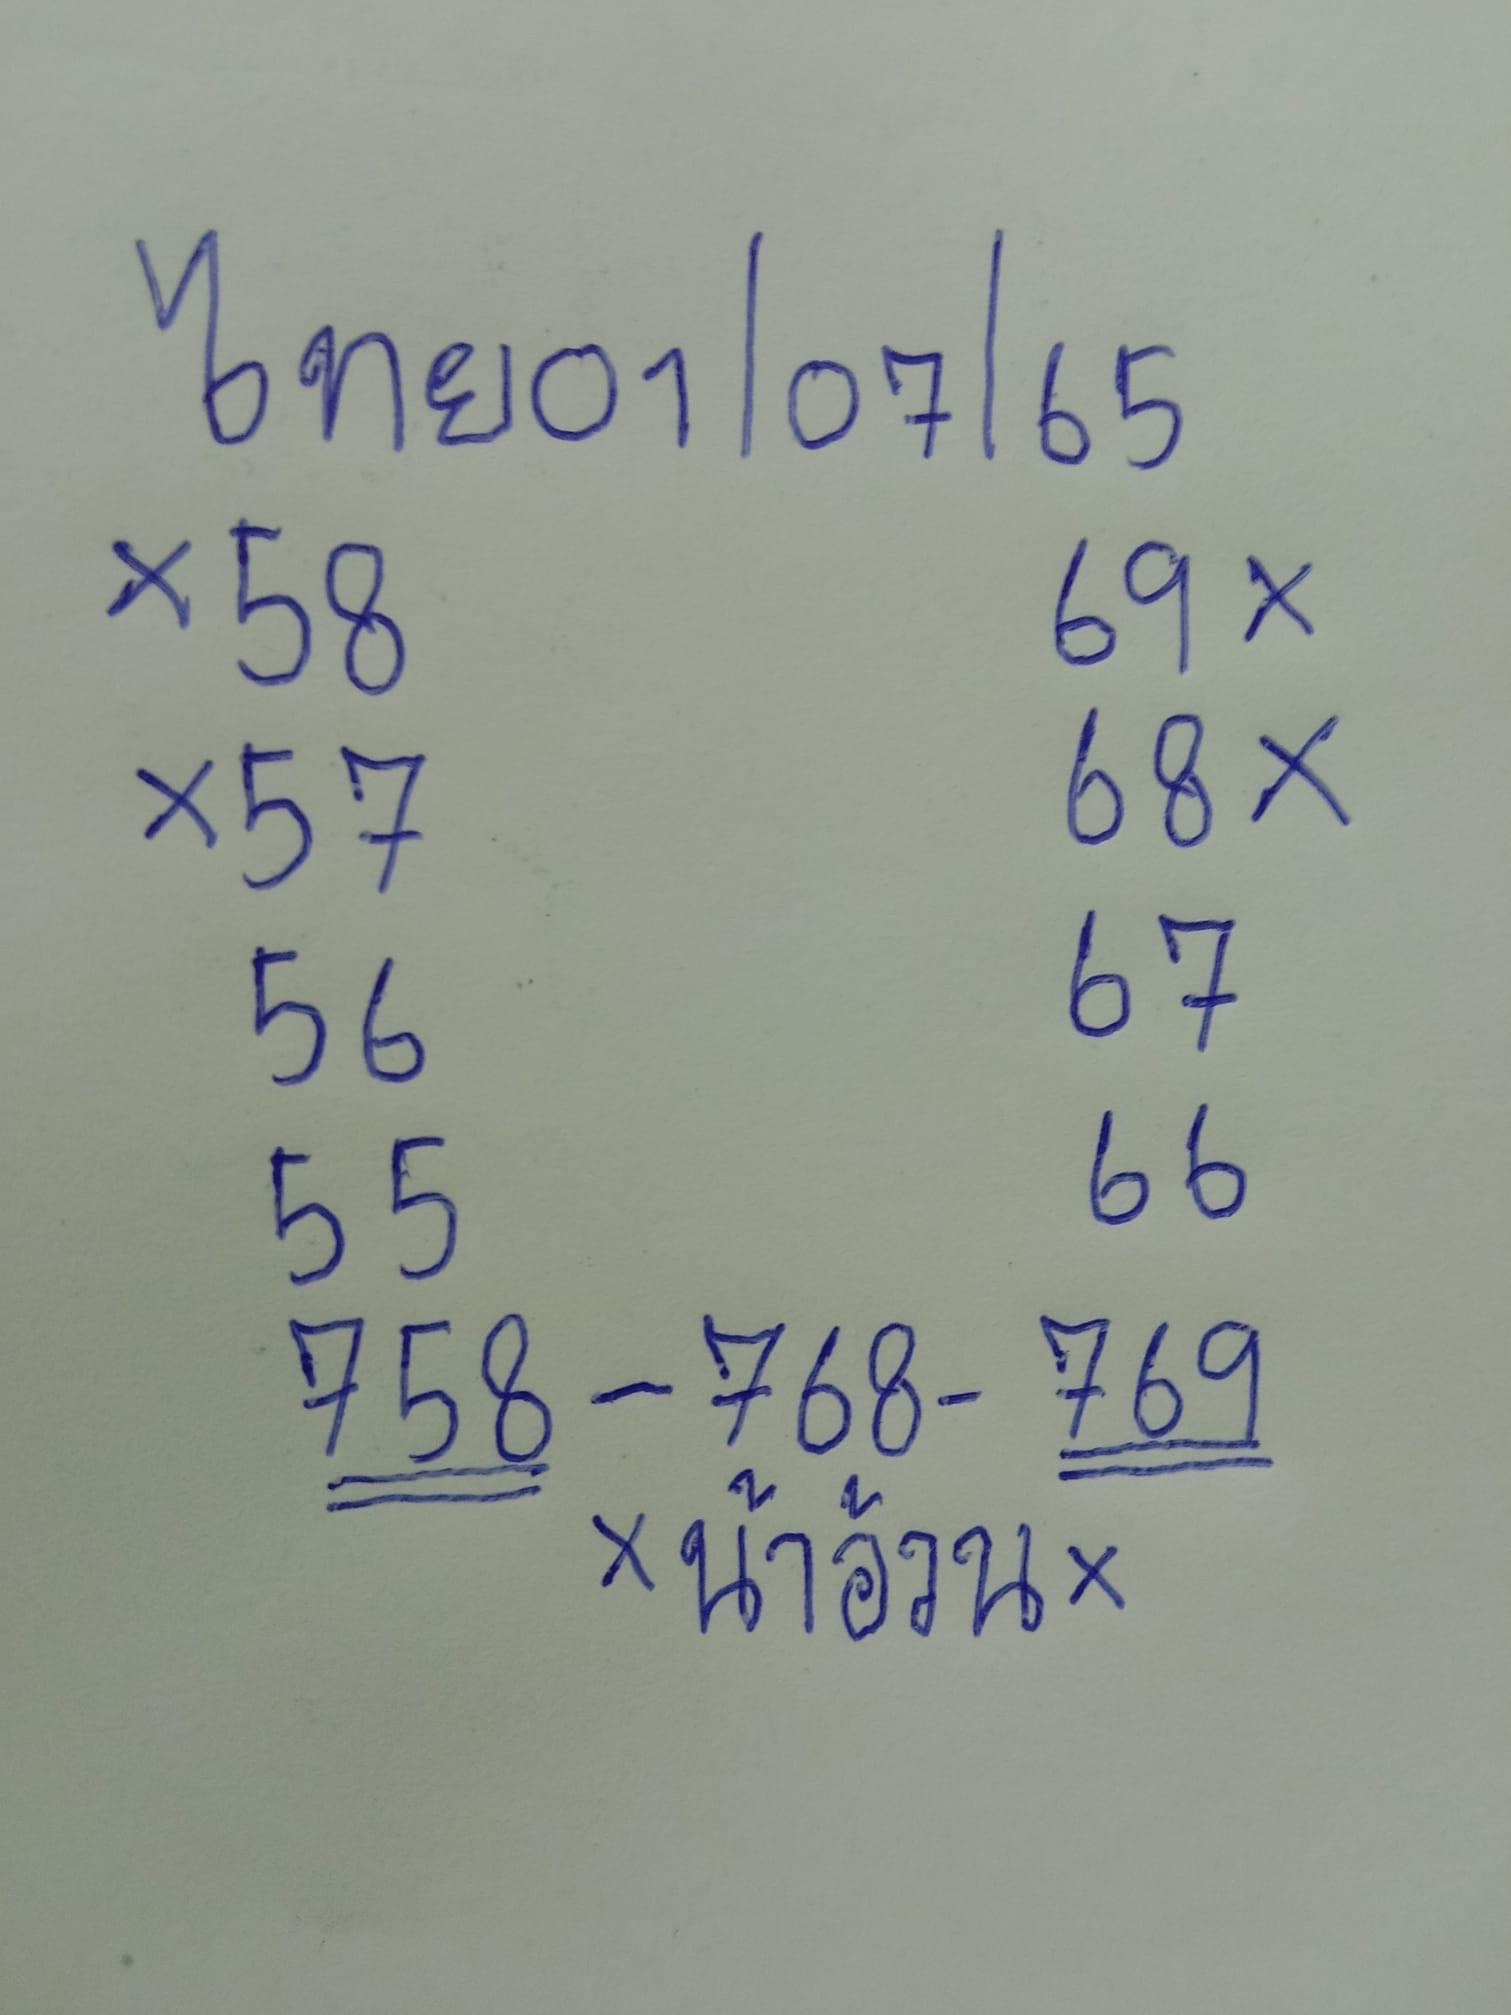 ไทย01/07/65
×58 69×
×57 68×
56 67
55 66
758-768-769
×น้าอ้วน×